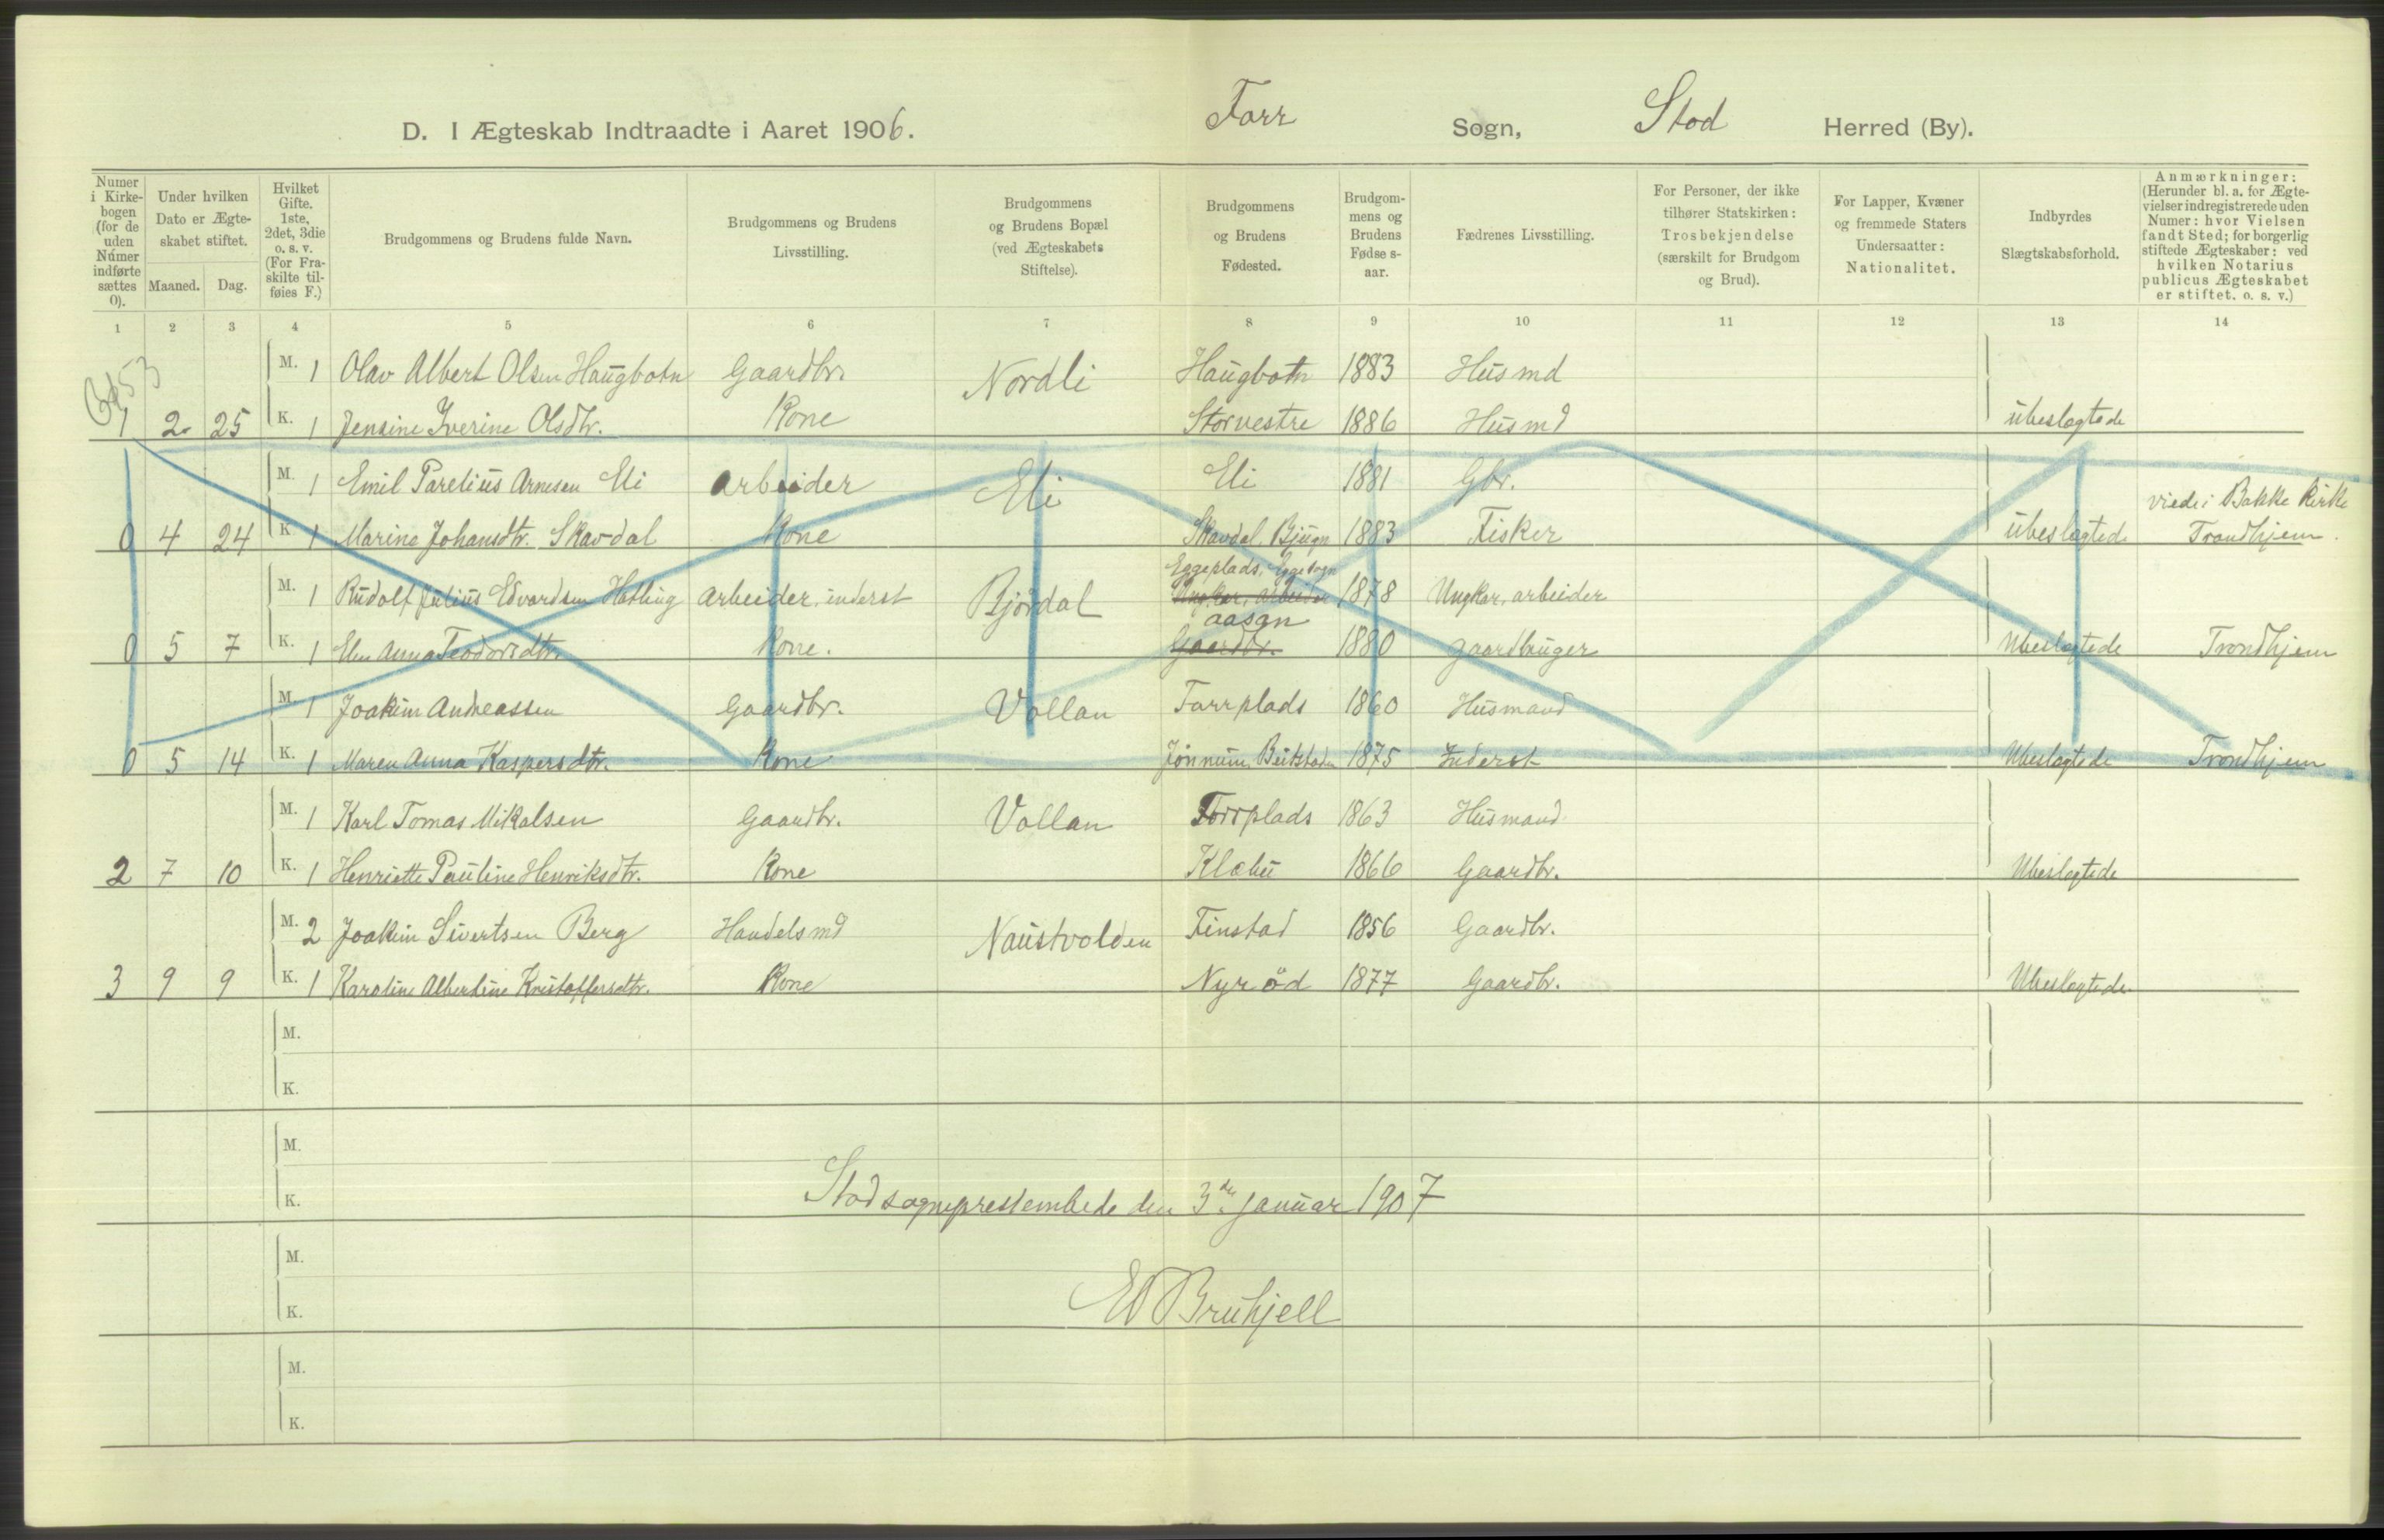 D. I Ægteskab Indtraadte i Aaret 1906. Forr Sogn, Stod Herred (By).
Numer i Kirke-bogen (for de uden Númer indførte sættes 0).
Under hvilken Dato er Ægte-skabet stiftet.
Maaned. Dag.
Hvilket Gifte. 1ste, 2det, 3die o. s. v. (For Fra-skilte til-føies F.)
Brudgommens og Brudens fulde Navn.
Brudgommens og Brudens Livsstilling.
Brudgommens og Brudens Bopæl (ved Ægteskabets Stiftelse).
Brudgommens og Brudens Fødested.
Brudgom-mens og Brudens Fødses-aar.
Fædrenes Livsstilling.
For Personer, der ikke tilhører Statskirken: Trosbekjendelse (særskilt for Brudgom og Brud).
For Lapper, Kvæner og fremmede Staters Undersaatter: Nationalitet.
Indbyrdes Slægtskabsforhold.
Anmærkninger: (Herunder bl. a. for Ægte-vielser indregistrerede uden Numer: hvor Vielsen fandt Sted; for borgerlig stiftede Ægteskaber: ved hvilken Notarius publicus Ægteskabet er stiftet. o. s. v.)
1 2 3 4 5 6 7 8 9 10 11 12 13 14
M. 1 Olav Albert Olsen Haugbotn Gaardbr. Nordli Haugbotn 1883 Husmd
1 2 25 K. 1 Jensine Iverine Olsdtr. Kone Storvestre 1886 Husmd ubeslægtede
M. 1 Emil Parelius Arnesen Eli arbeider Eli Eli 1881 Gbr.
viede i Bakke Kirke
0 4 24 K 1 Marine Johansdtr. Skavdal Kone Skavdal, Bjugn 1883 Fisker ubeslægtede Trondhjem.
Eggeplads, Egge sogn
M. 1 Rudolf Julius Edvardsen Hatling Arbeider, inderst Bjørdal Ungkar, arbeider 1878 Ungkar, arbeider
aasan
0 5 7 K. 1 Elen Anna Teodorsdtr. Kone. Gaardbr. 1880 gaardbruger Ubeslægtede Trondhjem
M. 1 Joakim Andreassen Gaardbr. Vollan Forrplads 1860 Husmand
0 5 14 K. 1 Maren Anna Kaspersdtr. Kone Jønnum, Beitstaden 1875 Inderst Ubeslægtede Trondhjem
M. 1 Karl Tomas Mikalsen Gaardbr. Vollan Forrplads 1863 Husmand
2 7 10 K. 1 Henriette Pauline Henriksdtr. Kone Klæbu 1866 Gaardbr. Ubeslægtede
M. 2 Joakim Sivertsen Berg Handelsmd Naustvolden Finstad 1856 Gaardbr.
3 9 9 K. 1 Karoline Albertine Kristoffersdtr. Kone Nyrød 1877 Gaardbr. Ubeslægtede
M.
K.
M.
K. Stod sogneprestembede den 3de januar 1907
M.
K.
M.
K.